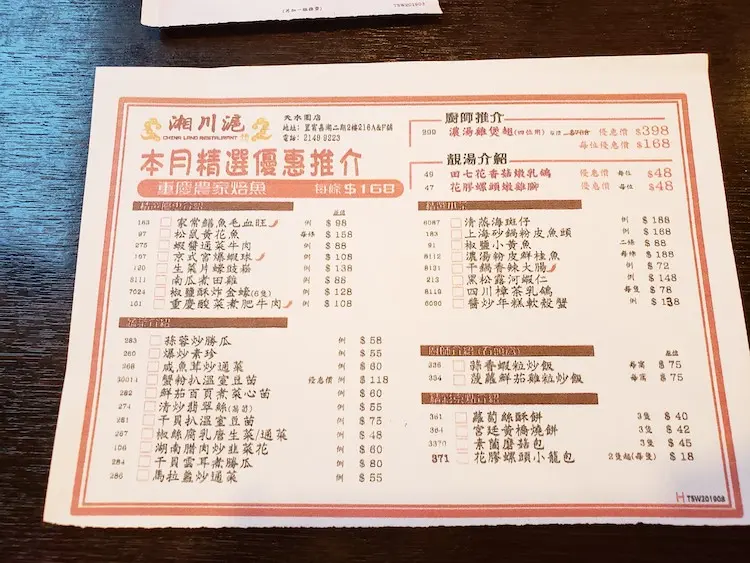 湘川滬
CHINA LAND RESTAURANT
天水圍店
地址: 置富嘉湖二期2樓216A&F舖
電話: 2149 9223
本月精選優惠推介
重慶農家焙魚 每條 $168
廚師推介
999 濃湯雞煲翅(四位用) 優惠價 $398
每位優惠價 $168
靚湯介紹
49 田七花香菇燉乳鴿 每位 優惠價 $48
47 花膠螺頭燉雞腳 每位 優惠價 $48
163 家常鱔魚毛血旺 例 $ 98
97 松鼠黃花魚 每條 $ 158
275 蝦醬通菜牛肉 例 $ 88
167 京式宮爆蝦球 例 $ 108
120 生菜片蠔豉崧 例 $ 138
8111 南瓜煮田雞 例 $ 88
7024 椒鹽酥炸金蠔(6隻) 例 $ 128
161 重慶酸菜煮肥牛肉 例 $ 108
283 蒜蓉炒勝瓜 例 $ 58
260 爆炒素珍 例 $ 55
268 咸魚茸炒通菜 例 $ 60
30014 蟹粉扒溫室豆苗 優惠價 例 $ 118
282 鮮茄百頁煮菜心苗 例 $ 60
274 清炒翡翠絲(萵筍) 例 $ 55
261 干貝扒溫室豆苗 例 $ 75
267 椒絲腐乳唐生菜/通菜 例 $ 48
106 湖南腊肉炒韭菜花 例 $ 60
284 干貝雲耳煮勝瓜 例 $ 80
286 馬拉盞炒通菜 例 $ 55
6087 清蒸海斑仔 例 $ 188
183 上海砂鍋粉皮魚頭 例 $ 168
91 椒鹽小黃魚 二條 $ 88
8112 濃湯粉皮鮮桂魚 每條 $ 188
8131 干鍋香辣大腸 例 $ 72
213 黑松露河蝦仁 例 $ 148
8119 四川樟茶乳鴿 每隻 $ 78
6090 醬炒年糕軟殼蟹 例 $ 138
336 蒜香蝦粒炒飯 每窩 $ 75
334 菠蘿鮮茄雞粒炒飯 每窩 $ 75
361 蘿蔔絲酥餅 3隻 $ 40
364 宮廷黃橋燒餅 3隻 $ 42
3370 素菌磨菇包 3隻 $ 45
371 花膠螺頭小籠包 2隻起(每隻) $ 18
H TSW201908